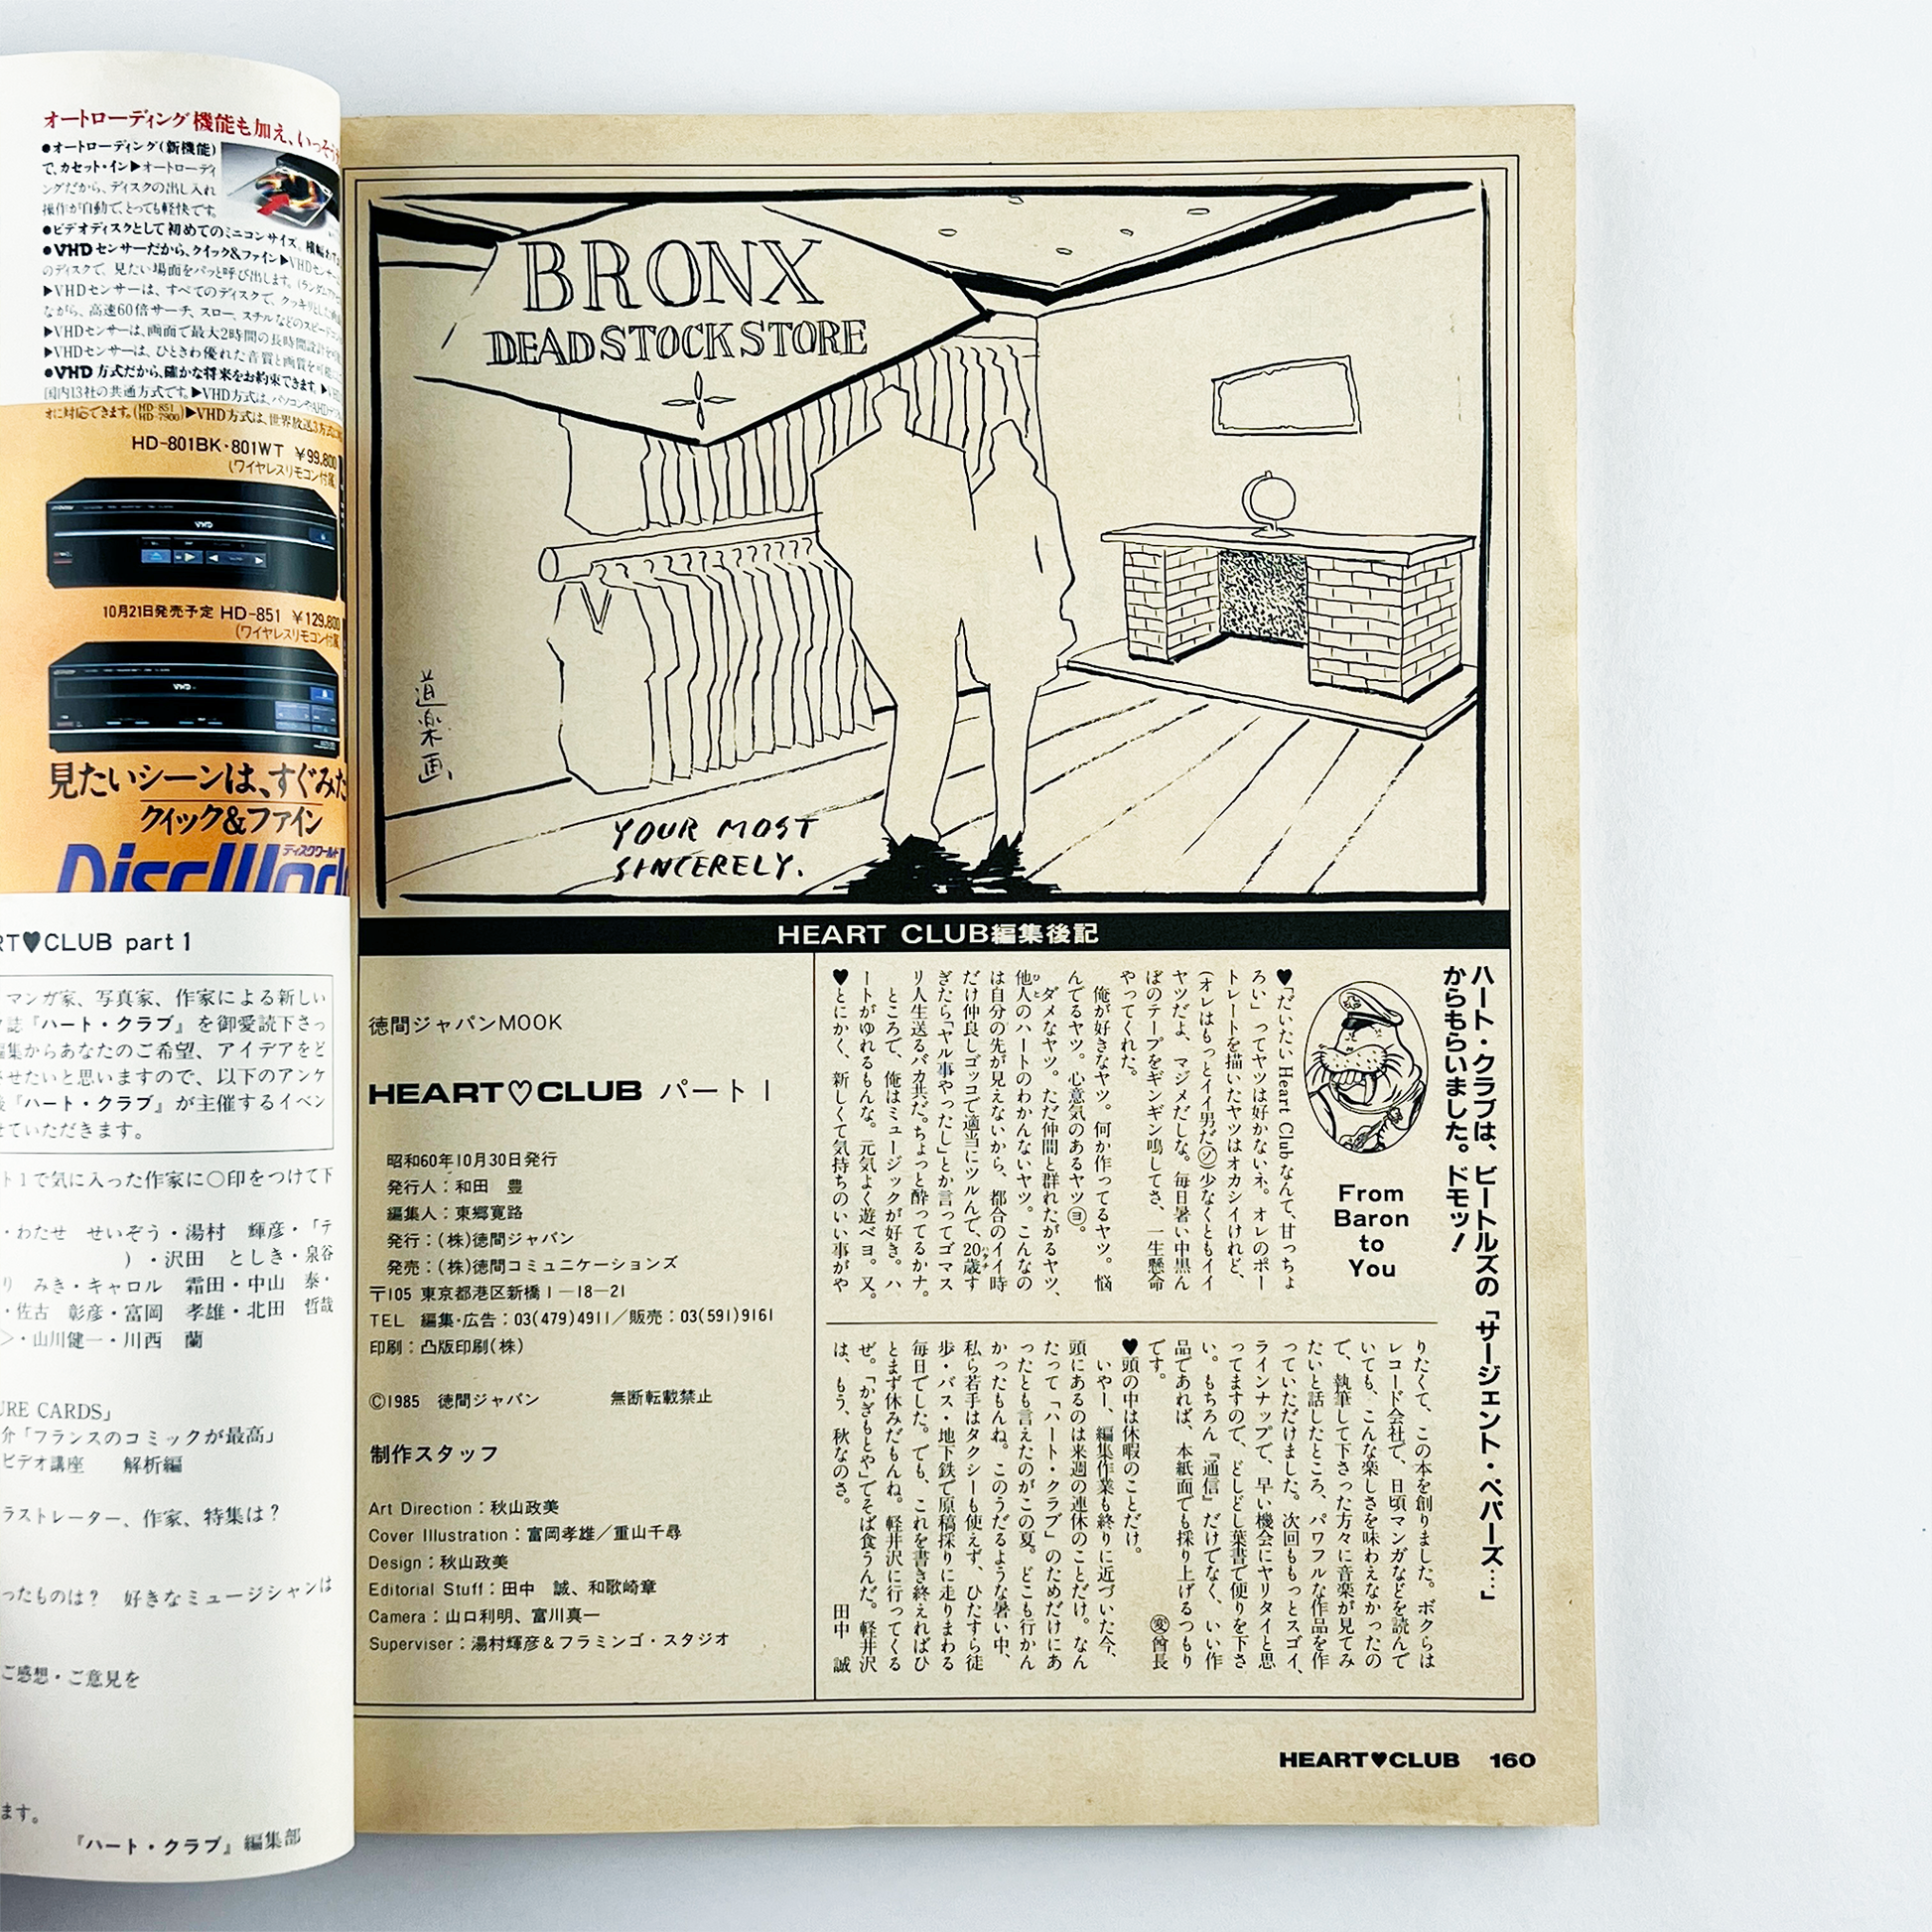 オートローディング機能も加え、いっそう
●オートローディング(新機能)
で、カセット・イン▶オートローディ
ングだから、ディスクの出し入れ
操作が自動で、とっても軽快です。
●ビデオディスクとして初めてのミニコンサイズ。横幅わずか
●VHDセンサーだから、クイック&ファイン▶VHDセンサー
のディスクで、見たい場面をパッと呼び出します。(ランダムア
▶VHDセンサーは、すべてのディスクで、クッキリとした画
ながら、高速60倍サーチ、スロー、スチルなどのスピード
▶VHDセンサーは、画面で最大2時間の長時間設計
▶VHDセンサーは、ひときわ優れた音質と画質を可能
●VHD方式だから、確かな将来をお約束できます。▶VHD
国内13社の共通方式です。▶VHD方式は、パソコンやAHDデジ
オに対応できます。(HD-851 HD-7900)▶VHD方式は、世界放送3方式に
HD-801BK・801WT ¥99,800
(ワイヤレスリモコン付属)
VHD
10月21日発売予定 HD-851 ¥129,800
(ワイヤレスリモコン付属)
VHD
見たいシーンは、すぐみた
クイック&ファイン
ディスクワールド
DiscWorld
RT♥CLUB part 1
マンガ家、写真家、作家による新しい
誌『ハート・クラブ』を御愛読下さっ
編集からあなたのご希望、アイデアをど
させたいと思いますので、以下のアンケ
後『ハート・クラブ』が主催するイベン
せていただきます。
ト1で気に入った作家に○印をつけて下
・わたせ せいぞう・湯村 輝彦・「テ
)・沢田 としき・泉谷
り みき・キャロル 霜田・中山 泰・
・佐古 彰彦・富岡 孝雄・北田 哲哉
>・山川健一・川西 蘭
URE CARDS」
介「フランスのコミックが最高」
ビデオ講座 解析編
ラストレーター、作家、特集は?
ったものは? 好きなミュージシャンは
ご感想・ご意見を
ます。
『ハート・クラブ』編集部
BRONX
DEADSTOCK STORE
道楽画
YOUR MOST
SINCERELY.
HEART CLUB編集後記
ハート・クラブは、ビートルズの「サージェント・ペパーズ…」
からもらいました。ドモッ!
From
Baron
to
You
♥「だいたいHeart Clubなんて、甘っちょ
ろい」ってヤツは好かないネ。オレのポー
トレートを描いたヤツはオカシイけれど、
(オレはもっとイイ男だⓨ)少なくともイイ
ヤツだよ、マジメだしな。毎日暑い中黒ん
ぼのテープをギンギン鳴してさ、一生懸命
やってくれた。
俺が好きなヤツ。何か作ってるヤツ。悩
んでるヤツ。心意気のあるヤツ㋵。
ダメなヤツ。ただ仲間と群れたがるヤツ、
他人のハートのわかんないヤツ。こんなの
は自分の先が見えないから、都合のイイ時
だけ仲良しゴッコで適当にツルんで、20歳す
ぎたら「ヤル事やったし」とか言ってゴマス
リ人生送るバカ共だ。ちょっと酔ってるかナ。
ところで、俺はミュージックが好き。ハ
ートがゆれるもんな。元気よく遊べヨ。又。
♥とにかく、新しくて気持ちのいい事がや
りたくて、この本を創りました。ボクらは
レコード会社で、日頃マンガなどを読んで
いても、こんな楽しさを味わえなかったの
で、執筆して下さった方々に音楽が見てみ
たいと話したところ、パワフルな作品を作
っていただけました。次回ももっとスゴイ、
ラインナップで、早い機会にヤリタイと思
ってますので、どしどし葉書で便りを下さ
い。もちろん『通信』だけでなく、いい作
品であれば、本紙面でも採り上げるつもり
です。 ㊥曾長
♥頭の中は休暇のことだけ。
いやー、編集作業も終りに近づいた今、
頭にあるのは来週の連休のことだけ。なん
たって「ハート・クラブ」のためだけにあ
ったとも言えたのがこの夏。どこも行かん
かったもんね。このうだるような暑い中、
私ら若手はタクシーも使えず、ひたすら徒
歩・バス・地下鉄で原稿採りに走りまわる
毎日でした。でも、これを書き終えればひ
とまず休みだもんね。軽井沢に行ってくる
ぜ。「かぎもとや」でそば食うんだ。軽井沢
は、もう、秋なのさ。 田中 誠
徳間ジャパンMOOK
HEART♡CLUB パート1
昭和60年10月30日発行
発行人:和田 豊
編集人:東郷寛路
発行:(株)徳間ジャパン
発売:(株)徳間コミュニケーションズ
〒105 東京都港区新橋1—18—21
TEL 編集・広告:03(479)4911/販売:03(591)9161
印刷:凸版印刷(株)
©1985 徳間ジャパン 無断転載禁止
制作スタッフ
Art Direction:秋山政美
Cover Illustration:富岡孝雄/重山千尋
Design:秋山政美
Editorial Stuff:田中 誠、和歌崎章
Camera:山口利明、富川真一
Superviser:湯村輝彦&フラミンゴ・スタジオ
HEART♥CLUB 160